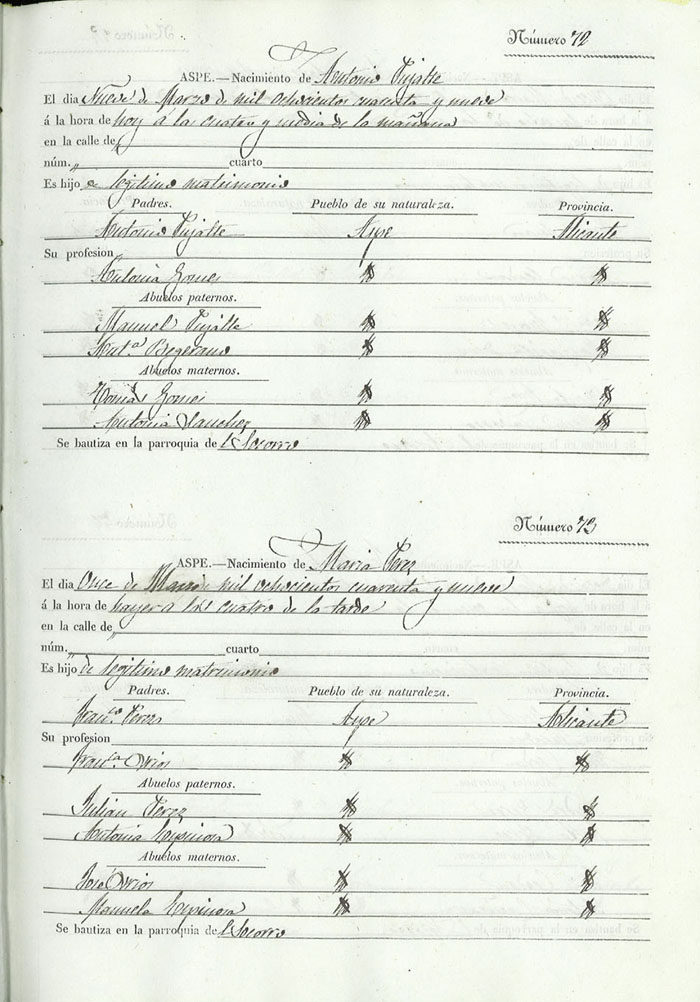 Número 72
ASPE.—Nacimiento de Antonio Pujalte
El dia Nueve de Marzo de mil ochocientos cuarenta y nueve
á la hora de hoy á las cuatro y media de la mañana
en la calle de „
núm. „ cuarto
Es hijo de legitimo matrimonio
Padres. Pueblo de su naturaleza. Provincia.
Antonio Pujalte Aspe Alicante
Su profesion
Antonia Gomes
Abuelos paternos.
Manuel Pujalte
Ant.ª Begerano
Abuelos maternos.
Tomás Gomes
Antonia Sanchez
Se bautiza en la parroquia de l Socorro
Número 73
ASPE.—Nacimiento de Maria Perez
El dia Once de Marzo de mil ochocientos cuarenta y nueve
á la hora de hayer a las cuatro de la tarde
en la calle de „
núm. cuarto
Es hijo de legitimo matrimonio
Padres. Pueblo de su naturaleza. Provincia.
Fran.co Perez Aspe Alicante
Su profesion
Fran.ca
Abuelos paternos.
Julian Perez
Antonia Espinosa
Abuelos maternos.
José
Manuela Espinosa
Se bautiza en la parroquia de l Socorro